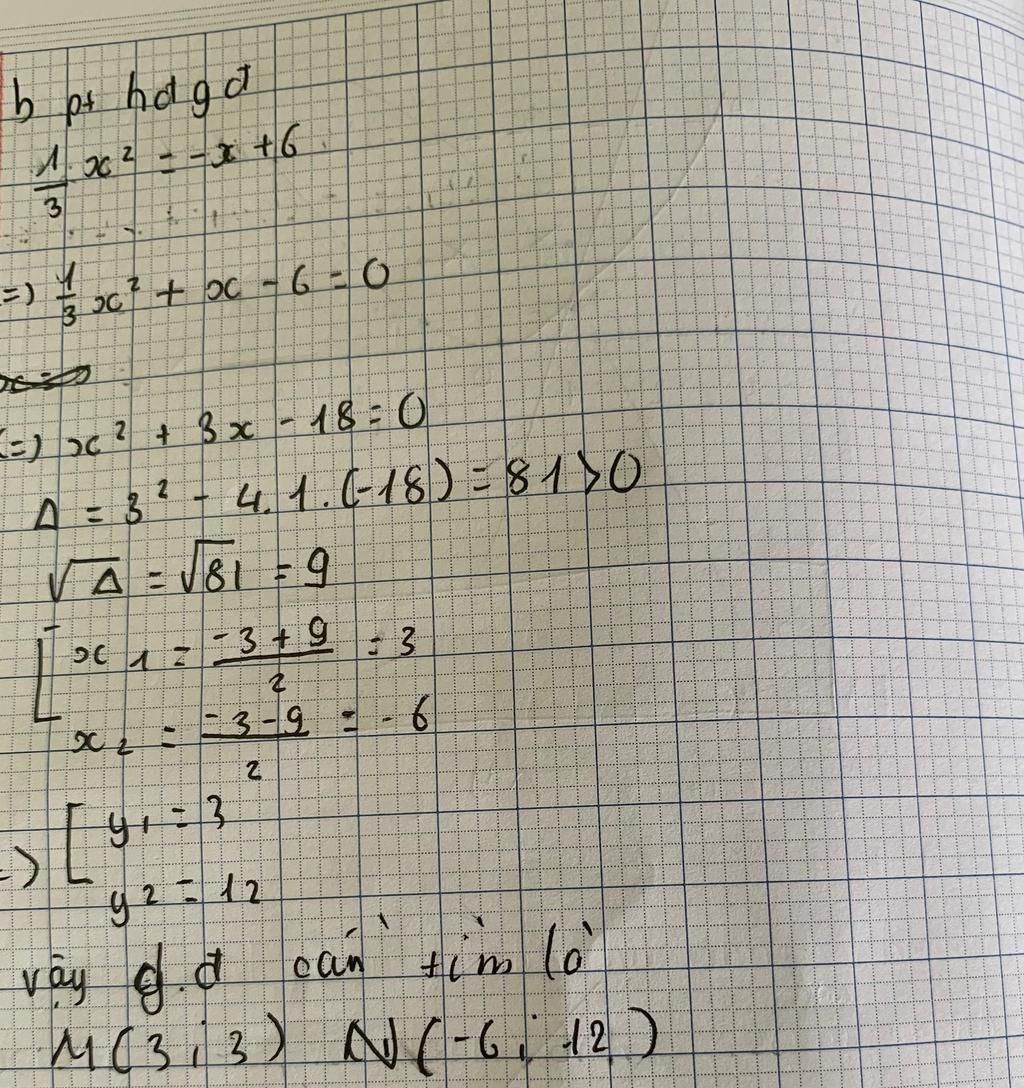 b pt hđgđ
1/3 x² = -x + 6
(=) 1/3 x² + x - 6 = 0
(=) x² + 3x - 18 = 0
Δ = 3² - 4.1.(-18) = 81 > 0
√Δ = √81 = 9
[ x₁ = (-3 + 9)/2 = 3
x₂ = (-3 - 9)/2 = -6
=) [ y₁ = 3
y₂ = 12
vậy g.đ cần tìm là
M(3; 3) N(-6; 12)